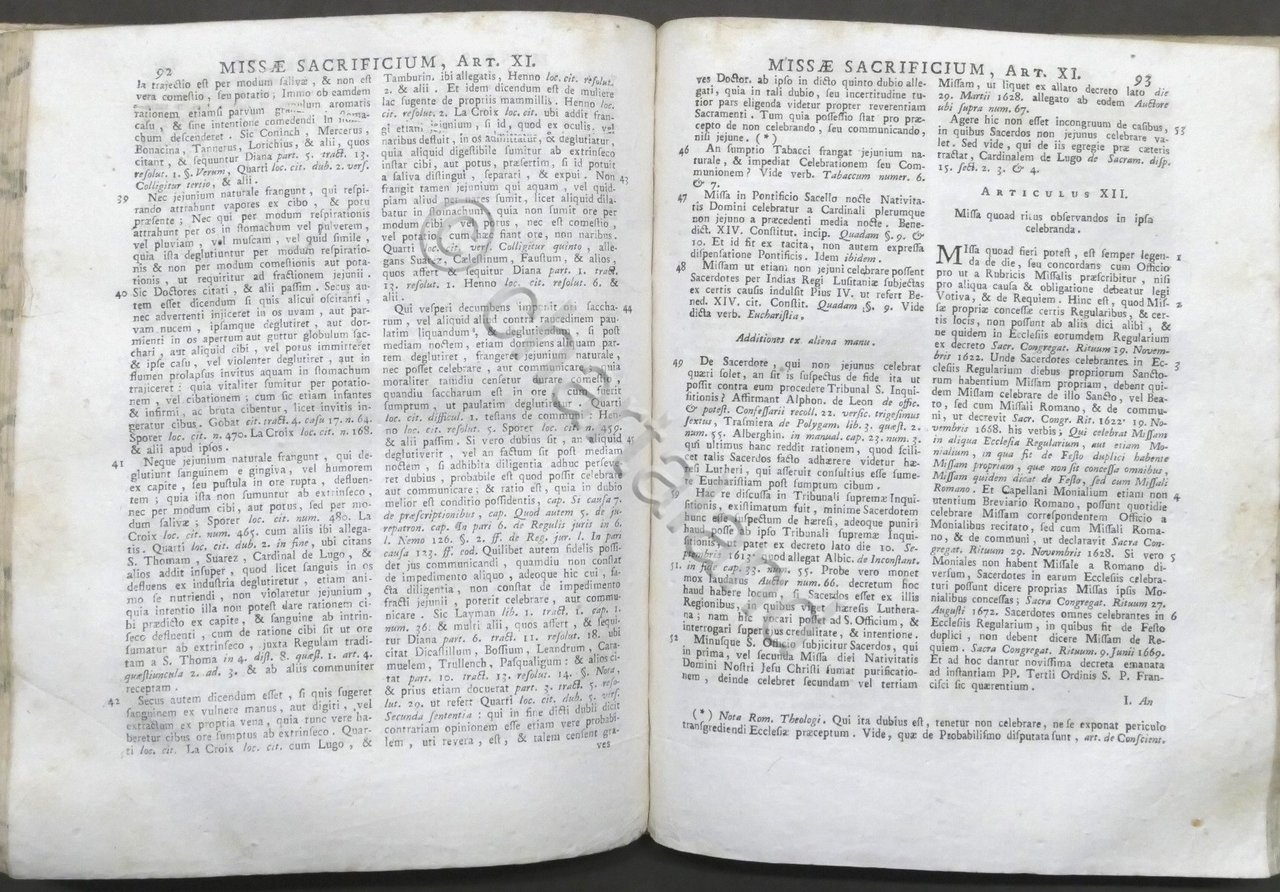 92
MISSÆ SACRIFICIUM, ART. XI.
la trajectio est per modum salivæ, & non est
vera comestio, seu potatio; Immo ob eamdem
rationem etiamsi parvum granulum aromatis
casu, & sine intentione comedendi In
chum descenderet. Sic Coninch, Mercerus,
Bonacina, Tannerus, Lorichius, & alii, quos
citant, & sequuntur Diana part. 5. tract. 13.
resolut. 1. §. Verum, Quarti loc. cit. dub. 2. vers.
Colligitur tertio, & alii.
39 Nec jejunium naturale frangunt, qui respi-
rando attrahunt vapores ex cibo, & potu
præsente; Nec qui per modum respirationis
attrahunt per os in stomachum vel pulverem,
vel pluviam, vel muscam, vel quid simile,
quia ista deglutiuntur per modum respiratio-
nis & non per modum comestionis aut pota-
tionis, ut requiritur ad fractionem jejunii.
40 Sic Doctores citati, & alii passim. Secus au-
tem esset dicendum si quis alicui oscitanti,
nec advertenti injiceret in os uvam, aut par-
vam nucem, ipsamque deglutiret, aut dor-
mienti in os apertum aut guttur globulum sac-
chari, aut aliquid cibi, vel potus immitteret
& ipse casu, vel violenter deglutiret, aut in
flumen prolapsus invitus aquam in stomachum
trajiceret: quia vitaliter sumitur per potatio-
nem, vel cibationem; cum sic etiam infantes
& infirmi, ac bruta cibentur, licet invitis in-
geratur cibus. Gobat cit. tract. 4. casu 17. n. 64.
Sporer loc. cit. n. 470. La Croix loc. cit. n. 168.
& alii apud ipsos.
41 Neque jejunium naturale frangunt, qui de-
glutiunt sanguinem e gingiva, vel humorem
ex capite, seu pustula in ore rupta, defluen-
tem; quia ista non sumuntur ab extrinseco,
nec per modum cibi, aut potus, sed per mo-
dum salivæ; Sporer loc. cit. num. 480. La
Croix loc. cit. num. 465. cum aliis ibi allega-
tis. Quarti loc. cit. dub. 2. in fine, ubi citans
S. Thomam, Suarez, Cardinal de Lugo, &
alios addit insuper, quod licet sanguis in os
defluens ex industria deglutiretur, etiam ani-
mo se nutriendi, non violaretur jejunium,
quia intentio illa non potest dare rationem ci-
bi prædicto ex capite, & sanguine ab intrin-
seco defluenti, cum de ratione cibi sit ut ore
sumatur ab extrinseco, juxta Regulam tradi-
tam a S. Thoma in 4. dist. 8. quæst. 1. art. 4.
quæstiuncula 2. ad. 3. & ab aliis communiter
receptam.
42 Secus autem dicendum esset, si quis sugeret
sanguinem ex vulnere manus, aut digiti, vel
extractum ex propria vena, quia tunc vere ha-
beretur cibus ore sumptus ab extrinseco. Quar-
ti loc. cit. La Croix loc. cit. cum Lugo, &
Tamburin. ibi allegatis, Henno loc. cit. resolut.
2. & alii. Et idem dicendum est de muliere
lac sugente de propriis mammillis. Henno loc.
cit. resolut. 2. La Croix loc. cit. ubi addit fran-
gi etiam jejunium, si id, quod ex oculis, vel
naribus defluit, in os admittatur, & deglutiatur,
quia aliquid digestibile sumitur ab extrinseco
instar cibi, aut potus, præsertim, si id potuit
a saliva distingui, separari, & expui. Non 43
frangit tamen jejunium qui aquam, vel quid-
piam aliud per nares sumit, licet aliquid dila-
batur in stomachum, quia non sumit ore per
modum cibi, vel potus, nec est comestio,
vel potatio cum hæ fiant ore, non naribus.
Quarti loc. cit. vers. Colligitur quinto, alle-
gans Suarez, Layminum, Faustum, & alios,
quos assert & sequitur Diana part. 1. tract.
13. resolut. 1. Henno loc. cit. resolut. 6. &
alii.
Qui vesperi decumbens immittit in os saccha- 44
rum, vel aliquid aliud contra raucedinem pau-
latim liquandum & deglutiendum, si post
mediam noctem, etiam dormiens aliquam par-
tem deglutiret, frangeret jejunium naturale,
nec posset celebrare, aut communicare, quia
moraliter tamdiu censetur durare comestio,
quandiu saccharum est in ore, cum fuerit
sumptum, ut paulatim deglutiretur. Quarti
loc. cit. difficul. 1. testans de communi: Hen-
no loc. cit. resolut. 5. Sporer loc. cit. n. 459.
& alii passim. Si vero dubius sit, an aliquid 45
deglutiverit, vel an factum sit post mediam
noctem, si adhibita diligentia adhuc perseve-
ret dubius, probabile est quod possit celebrare
aut communicare; & ratio est, quia in dubio
melior est conditio possidentis, cap. Si causa 7.
de præscriptionibus, cap. Quod autem 5. de ju-
repatron. cap. In pari 6. de Regulis juris in 6.
l. Nemo 126. §. 2. ff. de Reg. jur. l. In pari
causa 123. ff. eod. Quilibet autem fidelis possi-
det jus communicandi, quamdiu non constat
de impedimento aliquo, adeoque hic cui, fa-
cta diligentia, non constat de impedimento
fracti jejunii, poterit celebrare, aut commu-
nicare. Sic Layman lib. 1. tract. 1. cap. 1.
num. 36. & multi alii, quos assert, & sequi-
tur Diana part. 6. tract. 11. resolut. 18. ubi
citat Dicastillum, Bossium, Leandrum, Cara-
muelem, Trullench, Pasqualigum: & alios ci-
tat part. 10. tract. 13. resolut. 14. §. Nota,
& prius etiam docuerat part. 3. tract. 5. reso-
lut. 29. ut refert Quarti loc. cit. dub. 5. vers.
Secunda sententia: qui in fine dicti dubii dicit
contrariam opinionem esse etiam vere probabi-
lem, uti revera, est, & talem censent gra-
ves
MISSÆ SACRIFICIUM, ART. XI.
93
ves Doctor. ab ipso in dicto quinto dubio alle-
gati, quia in tali dubio, seu incertitudine tu-
tior pars eligenda videtur propter reverentiam
Sacramenti. Tum quia possessio stat pro præ-
cepto de non celebrando, seu communicando,
nisi jejune. (*)
46 An sumptio Tabacci frangat jejunium na-
turale, & impediat Celebrationem seu Com-
munionem? Vide verb. Tabaccum numer. 6.
& 7.
47 Missa in Pontificio Sacello nocte Nativita-
tis Domini celebratur a Cardinali plerumque
non jejuno a præcedenti media nocte. Bene-
dict. XIV. Constitut. incip. Quadam §. 9. &
10. Et id fit ex tacita, non autem expressa
dispensatione Pontificis. Idem ibidem.
48 Missam ut etiam non jejuni celebrare possent
Sacerdotes per Indias Regi Lusitaniæ subjectas
ex certis causis indulsit Pius IV. ut refert Be-
ned. XIV. cit. Constit. Quadam §. 9. Vide
dicta verb. Eucharistia.
Additiones ex aliena manu.
49 De Sacerdote qui non jejunus celebrat
quæri solet, an sit is suspectus de fide ita ut
possit contra eum procedere Tribunal S. Inqui-
sitionis? Affirmant Alphon. de Leon de offic.
& potest. Confessarii recoll. 22. versic. trigesimus
sextus, Trasmiera de Polygam. lib. 3. quæst. 2.
num. 55. Alberghin. in manual. cap. 23. num. 3.
qui ultimus hanc reddit rationem, quod scili-
cet talis Sacerdos facto adhærere videtur hæ-
resi Lutheri, qui asseruit consultius esse sume-
re Eucharistiam post sumptum cibum.
50 Hac re discussa in Tribunali supremæ Inqui-
sitionis, existimatum fuit, minime Sacerdotem
hunc esse suspectum de hæresi, adeoque puniri
haud posse ab ipso Tribunali supremæ Inqui-
sitionis, ut patet ex decreto lato die 10. Se-
ptembris 1613. quod allegat Albic. de Inconstant.
51. in fide cap. 33. num. 55. Probe vero monet
mox laudatus Auctor num. 66. decretum hoc
haud habere locum si Sacerdos esset ex illis
Regionibus, in quibus viget hæresis Luthera-
na; nam hic vocari posset ad S. Officium, &
interrogari super ejus credulitate, & intentione.
52 Minusque S. Officio subjicitur Sacerdos, qui
in prima, vel secunda Missa diei Nativitatis
Domini Nostri Jesu Christi sumat purificatio-
nem, deinde celebret secundam vel tertiam
Missam, ut liquet ex allato decreto lato die
29. Martii 1628. allegato ab eodem Auctore
ubi supra num. 67.
Agere hic non esset incongruum de casibus, 53
in quibus Sacerdos non jejunus celebrare va-
let. Sed vide, qui de iis egregie præ cæteris
tractat, Cardinalem de Lugo de Sacram. disp.
15. sect. 2. 3. & 4.
ARTICULUS XII.
Missa quoad ritus observandos in ipsa
celebranda.
MIssa quoad fieri potest, est semper legen- 1
da de die, seu concordans cum Officio
pro ut a Rubricis Missalis præscribitur, nisi
pro aliqua causa & obligatione debeatur legi
Votiva, & de Requiem. Hinc est, quod Mis- 2
sæ propriæ concessæ certis Regularibus, & cer-
tis locis, non possunt ab aliis dici alibi, &
ne quidem in Ecclesiis eorumdem Regularium
ex decreto Sacr. Congregat. Rituum 19. Novem-
bris 1622. Unde Sacerdotes celebrantes in Ec- 3
clesiis Regularium diebus propriorum Sancto-
rum habentium Missam propriam, debent qui-
dem Missam celebrare de illo Sancto, vel Bea-
to, sed cum Missali Romano, & de commu-
ni, ut decrevit Sacr. Congr. Rit. 1622. 19. No-
vembris 1668. his verbis; Qui celebrat Missam
in aliqua Ecclesia Regularium, aut etiam Mo-
nialium, in qua fit de Festo duplici habente
Missam propriam, quæ non sit concessa omnibus,
Missam quidem dicat de Festo, sed cum Missali
Romano. Et Capellani Monialium etiam non 4
utentium Breviario Romano, possunt quotidie
celebrare Missam correspondentem Officio a
Monialibus recitato, sed cum Missali Roma-
no, & de communi, ut declaravit Sacra Con-
gregat. Rituum 29. Novembris 1628. Si vero 5
Moniales non habent Missale a Romano di-
versum, Sacerdotes in earum Ecclesiis celebra-
turi possunt dicere proprias Missas ipsis Mo-
nialibus concessas; Sacra Congregat. Rituum 27.
Augusti 1672. Sacerdotes omnes celebrantes in 6
Ecclesiis Regularium, in quibus fit de Festo
duplici, non debent dicere Missam de Re-
quiem. Sacra Congregat. Rituum. 9. Junii 1669.
Et ad hoc dantur novissima decreta emanata
ad instantiam PP. Tertii Ordinis S. P. Fran-
cisci sic quærentium.
I. An
(*) Nota Rom. Theologi. Qui ita dubius est, tenetur non celebrare, ne se exponat periculo
transgrediendi Ecclesiæ præceptum. Vide, quæ de Probabilismo disputata sunt, art. de Conscient.